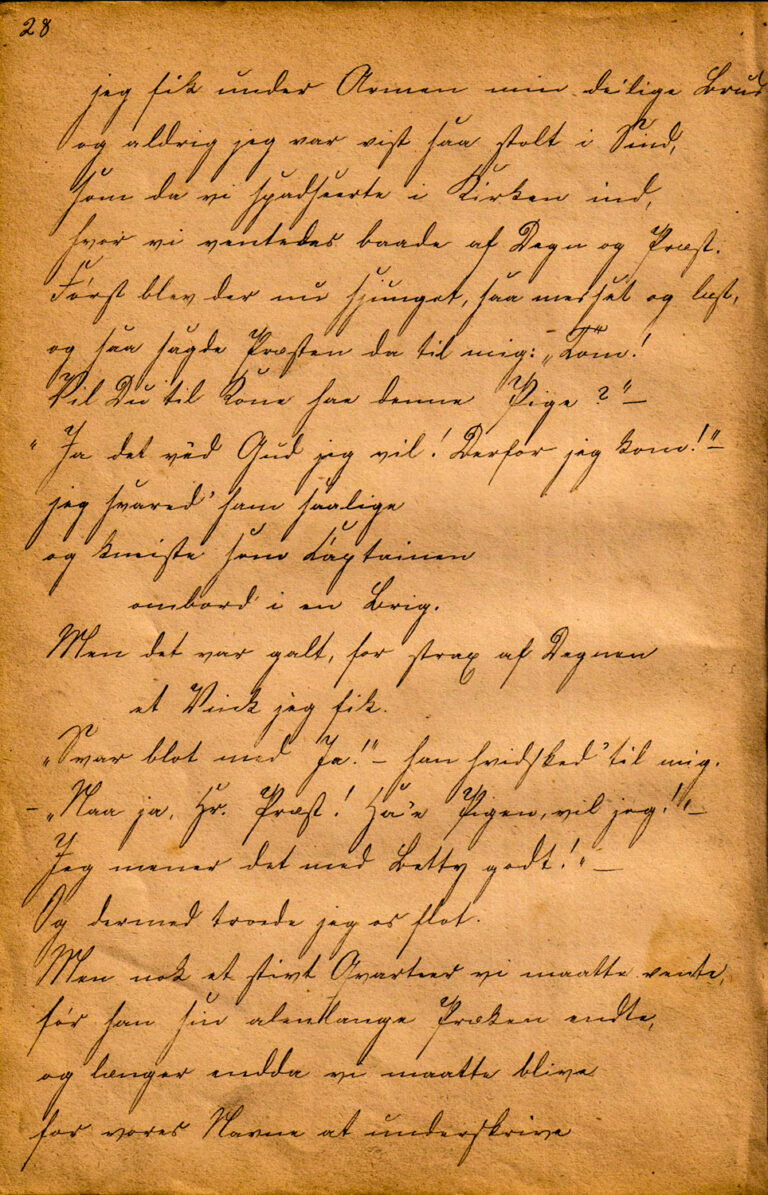 28
jeg fik under Armen min deilige Brud
og aldrig jeg var vist saa stolt i Sind,
som da vi spadseerte i Kirken ind,
hvor vi ventedes baade af Degn og Præst.
Först blev der nu sjunget, saa messet og læst,
og saa sagde Præsten da til mig: „Tom!
Vil Du til Kone hae denne Pige?“ —
„Ja det véd Gud jeg vil! Derfor jeg kom!“ —
jeg svared' ham saalige
og kneiste som Captainen
ombord i en Brig.
Men det var galt, for strax af Degnen
et Vink jeg fik.
„Svar blot med Ja!“ — han hvidsked' til mig.
— „Naa ja, Hr. Præst! Ha'e Pigen, vil jeg!“ —
Jeg mener det med Betty godt!“ —
Og dermed troede jeg os flot.
Men nok et stivt Qvarteer vi maatte vente,
för han sin alenlange Præken endte,
og længer endda vi maatte blive
for vores Navne at underskrive